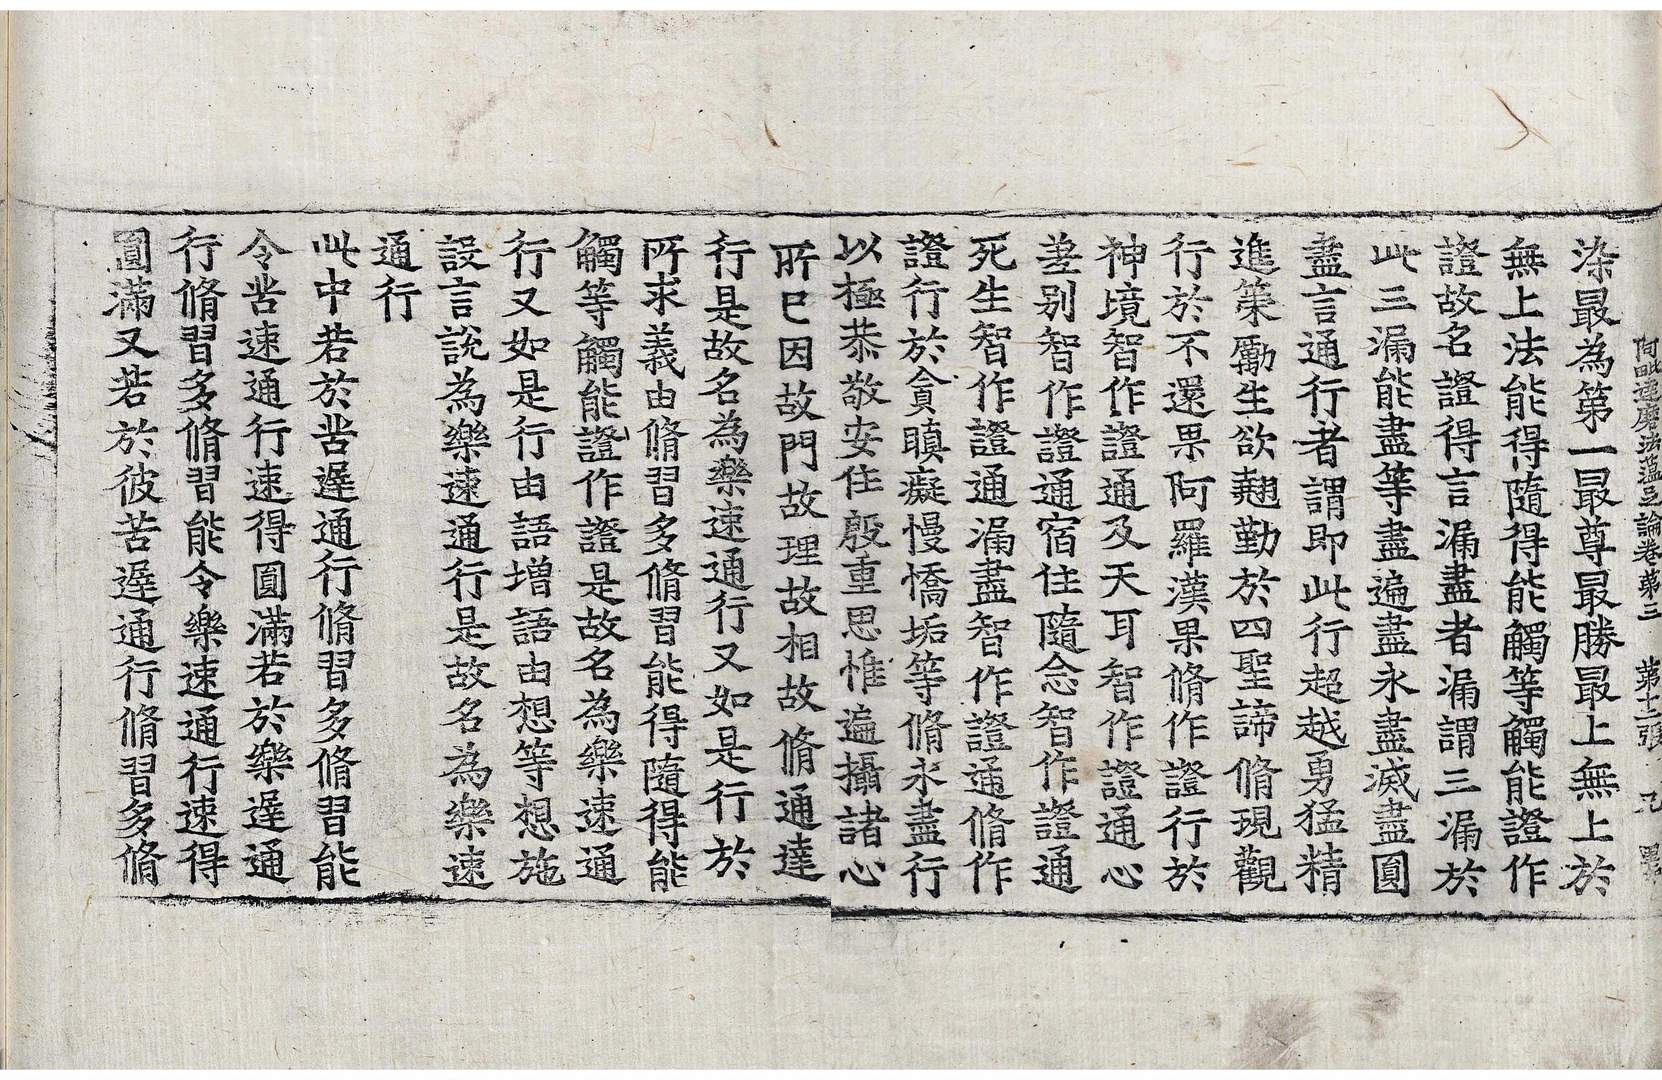 阿毗達磨法蘊足論卷第三 第十二張 兄
染最為第一最尊最勝最上無上於
無上法能得隨得能觸等觸能證作
證故名證得言漏盡者漏謂三漏於
此三漏能盡等盡遍盡永盡滅盡圓
盡言通行者謂即此行超越勇猛精
進策勵生欲翹勤於四聖諦脩現觀
行於不還果阿羅漢果脩作證行於
神境智作證通及天耳智作證通心
差别智作證通宿住隨念智作證通
死生智作證通漏盡智作證通脩作
證行於貪瞋癡慢憍垢等脩永盡行
以極恭敬安住殷重思惟遍攝諸心
所已因故門故理故相故脩通達
行是故名為樂速通行又如是行於
所求義由脩習多脩習能得隨得能
觸等觸能證作證是故名為樂速通
行又如是行由語增語由想等想施
設言說為樂速通行是故名為樂速
通行
此中若於苦遲通行脩習多脩習能
令苦速通行速得圓滿若於樂遲通
行脩習多脩習能令樂速通行速得
圓滿又若於彼苦遲通行脩習多脩